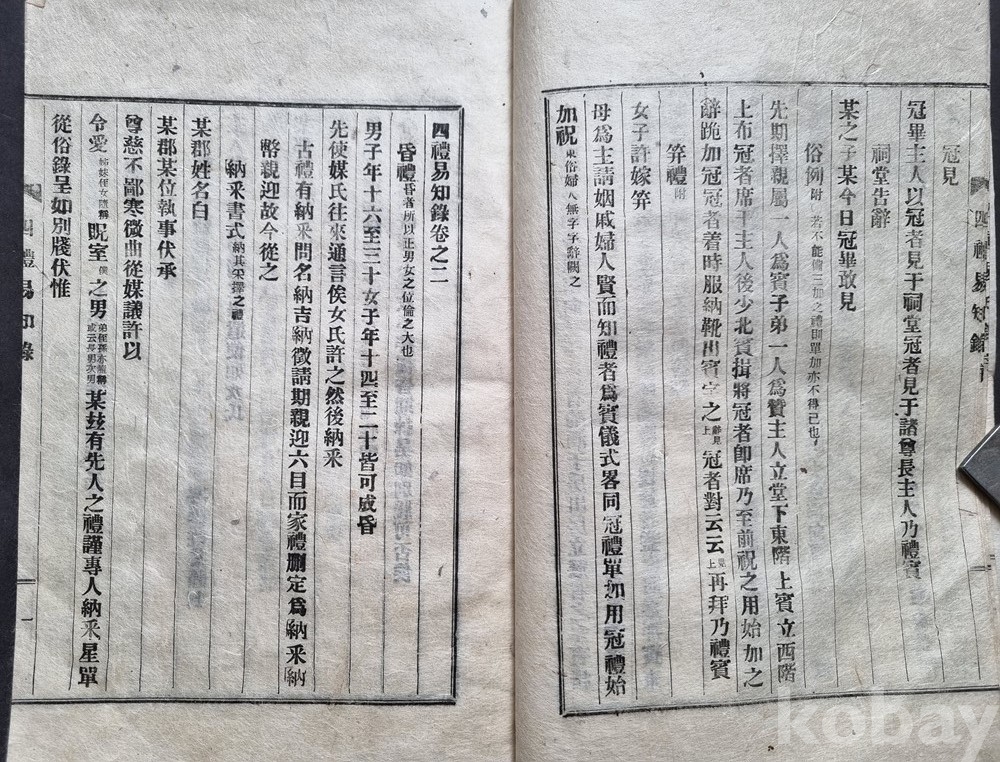 冠見
冠畢主人以冠者見于祠堂冠者見于諸尊長主人乃禮賓
祠堂告辭
某之子某今日冠畢敢見
俗例附 若不能備三加之禮則單加亦不得已也
先期擇親屬一人爲賓子弟一人爲贊主人立堂下東階上賓立西階
上布冠者席于主人後少北賓揖將冠者卽席乃至前祝之用始加之
辭跪加冠冠者着時服納靴出賓字之辭見上冠者對云云見上再拜乃禮賓
笄禮附
女子許嫁笄
母爲主請姻戚婦人賢而知禮者爲賓儀式畧同冠禮單加用冠禮始
加祝東俗婦人無字字辭闕之
四禮易知錄
四禮易知錄卷之二
昏禮昏者所以正男女之位倫之大也
男子年十六至三十女子年十四至二十皆可成昏
先使媒氏往來通言俟女氏許之然後納采
古禮有納采問名納吉納徵請期親迎六目而家禮删定爲納采納
幣親迎故今從之
納采書式納其采擇之禮
某郡姓名白
某郡某位執事伏承
尊慈不鄙寒微曲從媒議許以
令愛姊妹侄女隨稱貺室僕之男弟侄孫亦隨稱或云長男次男某玆有先人之禮謹專人納采星單
從俗錄呈如別牋伏惟
四禮易知錄
一
kobay